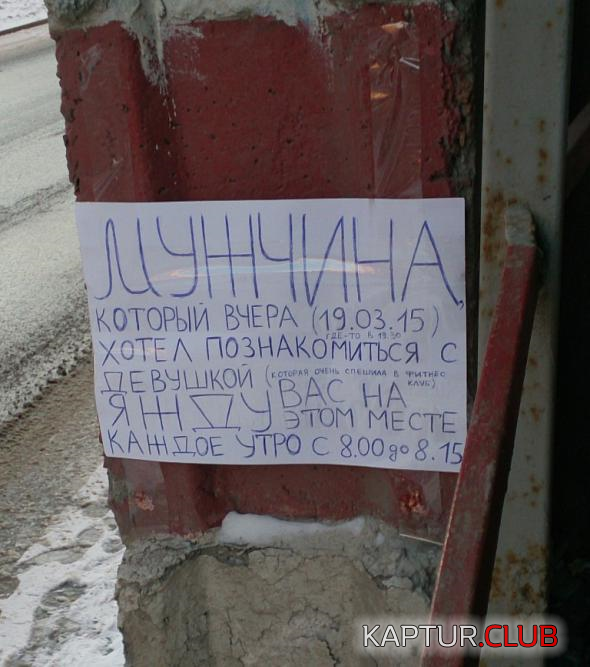 МУЖЧИНА,
КОТОРЫЙ ВЧЕРА (19.03.15)
ГДЕ-ТО В 19.30
ХОТЕЛ ПОЗНАКОМИТЬСЯ С
ДЕВУШКОЙ (КОТОРАЯ ОЧЕНЬ СПЕШИЛА В ФИТНЕС КЛУБ)
Я ЖДУ ВАС НА
ЭТОМ МЕСТЕ
КАЖДОЕ УТРО С 8.00 до 8.15
KAPTUR.CLUB